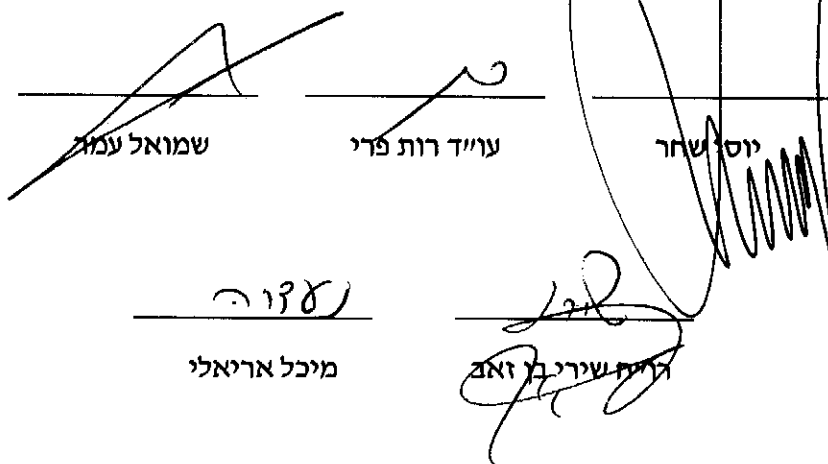 יוסי שחר עו״ד רות פרי שמואל עמר
נעדרה
רו״ח שירי בן זאב מיכל אריאלי